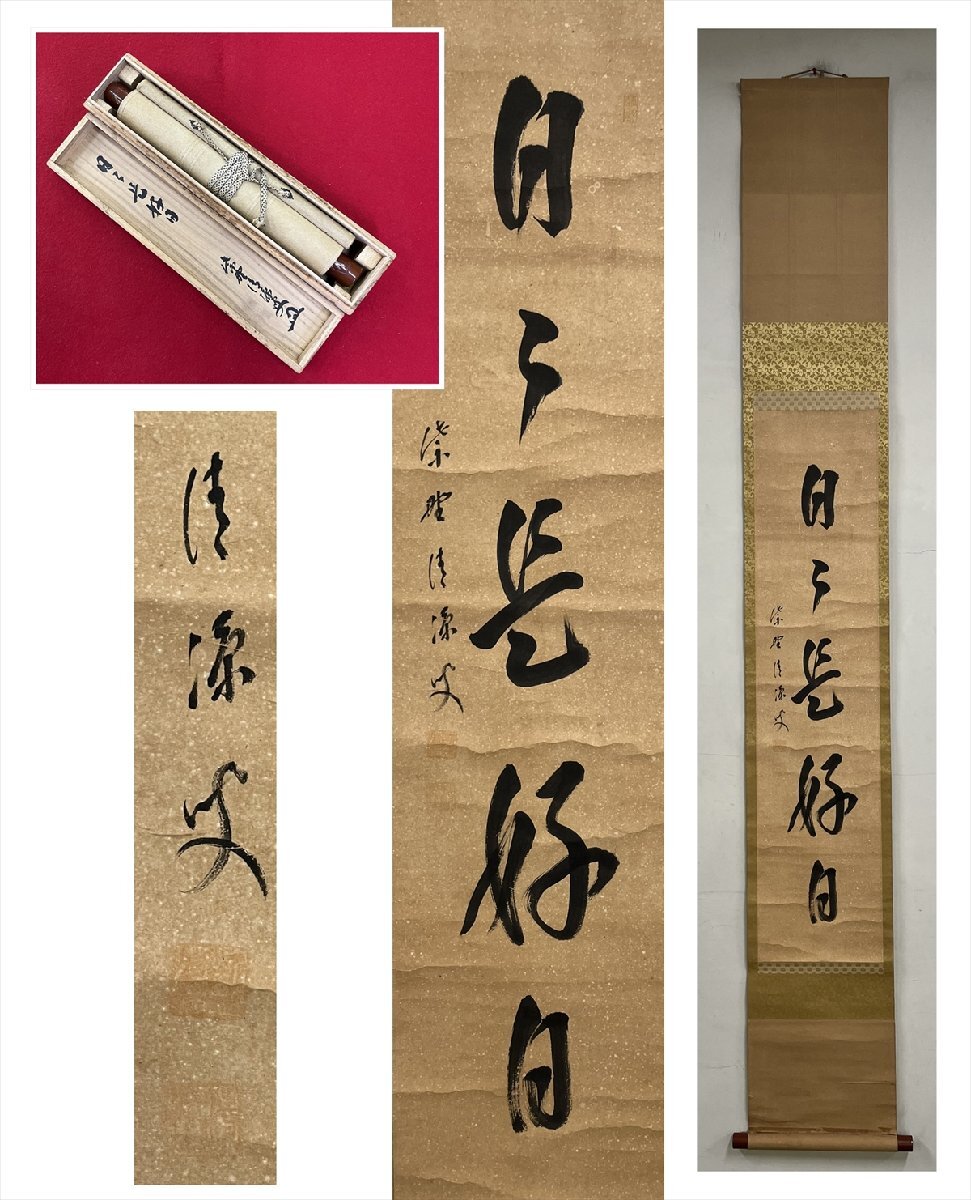 日々是好日
紫野清涼叟
清涼叟
日々是好日
紫野清涼叟
日々是好日